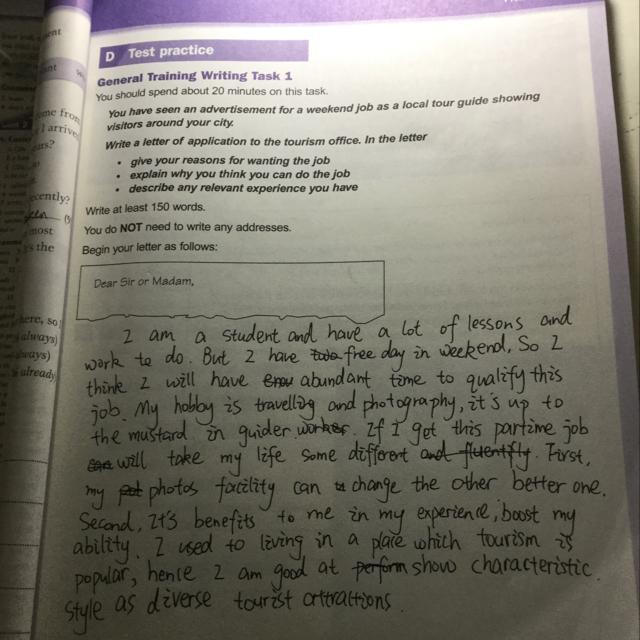 D Test practice
General Training Writing Task 1
You should spend about 20 minutes on this task.
You have seen an advertisement for a weekend job as a local tour guide showing
visitors around your city.
Write a letter of application to the tourism office. In the letter
• give your reasons for wanting the job
• explain why you think you can do the job
• describe any relevant experience you have
Write at least 150 words.
You do NOT need to write any addresses.
Begin your letter as follows:
Dear Sir or Madam,
I am a student and have a lot of lessons and
work to do. But I have free day in weekend, So I
think I will have abundant time to qualify this
job. My hobby is travelling and photography, it's up to
the mustard in guider worker. If I get this partime job
will take my life some different and fluentifly. First,
my photos facility can change the other better one.
Second, It's benefits to me in my experience, boost my
ability. I used to living in a place which tourism is
popular, hence I am good at perform show characteristic
style as diverse tourist attractions.
ent
ome from
I arrive
ours?
ecently?
(5)
most
's the
here, so
always)
ways)
already